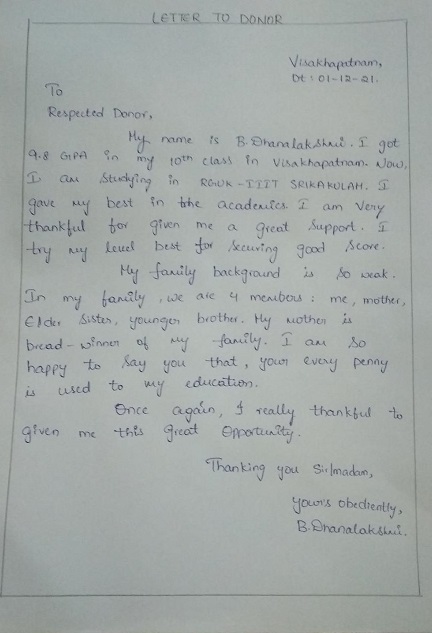 LETTER TO DONOR
Visakhapatnam,
Dt : 01-12-21.
To
Respected Donor,
My name is B.Dhanalakshmi. I got
9.8 GPA in my 10th class in Visakhapatnam. Now,
I am studying in RGUK-IIIT SRIKAKULAM. I
gave my best in the academics. I am very
thankful for given me a great support. I
try my level best for securing good score.
My family background is so weak.
In my family, we are 4 members : me, mother,
Elder sister, younger brother. My mother is
bread-winner of my family. I am so
happy to say you that, your every penny
is used to my education.
Once again, I really thankful to
given me this great opportunity.
Thanking you Sir/madam,
yours obediently,
B.Dhanalakshmi.